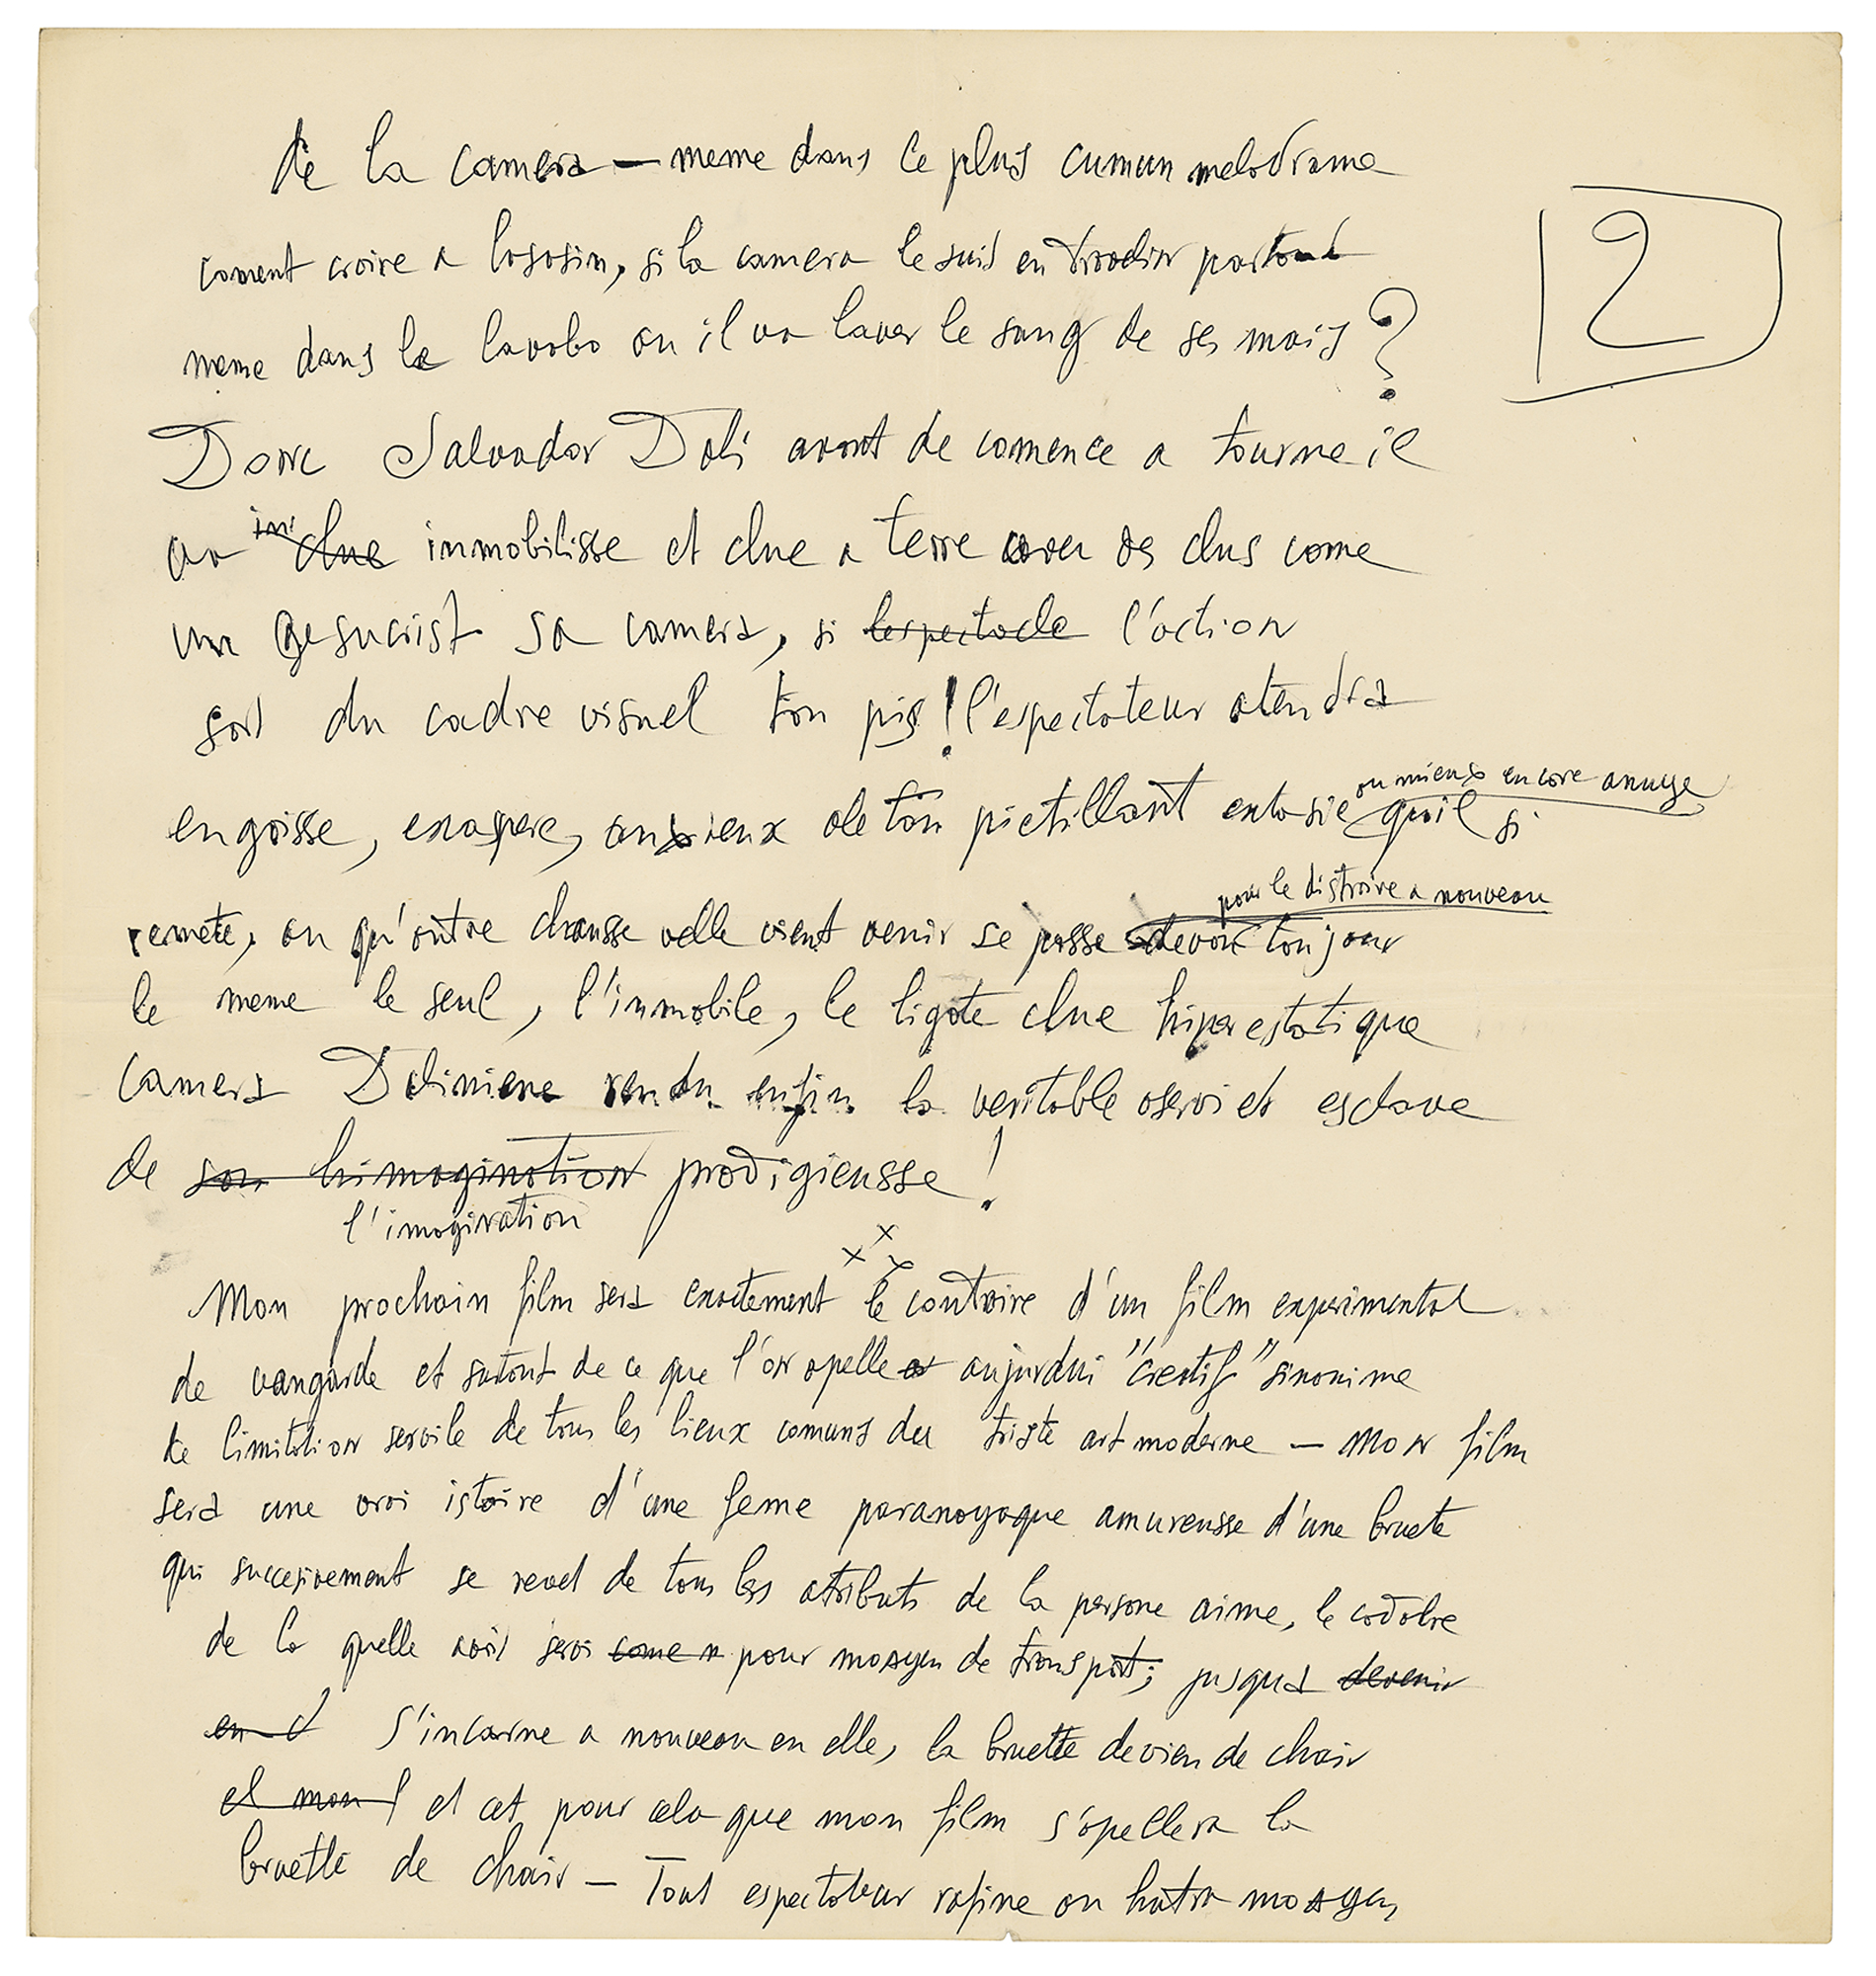 de la camera — meme dans le plus cumun melodrame
2
coment croire a lasasin, si la camera le suis en travelin partout
meme dans le lavabo ou il va laver le sang de ses mais ?
Donc Salvador Dali avant de comence a tourne il
va ini clue inmobilisse et clue a terre avec des clus come
un Gesucrist sa camera, si lespectacle l'action
sort du cadre visuel tan pis ! l'espectateur atendra
ou mieux encore anuye
engoisse, exaspere, anxieux aletan pietillant extasie quil si
pour le distraire a nouveau
remete, ou qu'autre chausse velle vient venir se passe devan toujour
le meme le seul, l'inmobile, le ligote clue hiperestatique
camera Daliniene rendu enfin la veritable aservi et esclave
de son himagination prodigieusse !
l'imagination
x x x
Mon prochain film sera exactement le contraire d'un film experimental
de vangarde et surtout de ce que l'on apelle aujurdui "creatif" sinonime
de limitation servile de tous les lieux comuns du triste art moderne — Mon film
sera une vrai istoire d'une feme paranoyaque amureusse d'une bruete
qui succesivement se revet de tous les atributs de la persone aime, le cadabre
de la quelle avai servi come n pour moayen de transport; jusqua devenir
en d s'incarne a nouveau en elle, la bruette devien de chair
el mon f et cet pour cela que mon film s'apellera la
bruette de chair — Tout espectateur rafine ou hultra moayen,